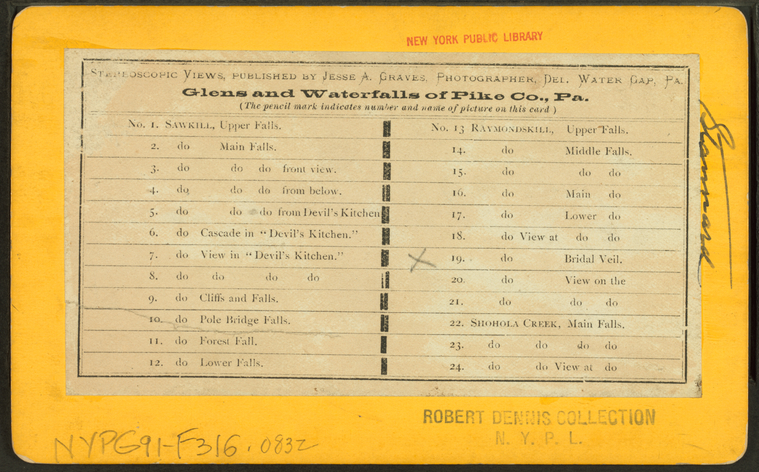 NEW YORK PUBLIC LIBRARY
STEREOSCOPIC VIEWS, PUBLISHED BY JESSE A. GRAVES, PHOTOGRAPHER, DEL. WATER GAP, PA.
Glens and Waterfalls of Pike Co., Pa.
(The pencil mark indicates number and name of picture on this card )
No. 1. SAWKILL, Upper Falls.
2. do Main Falls.
3. do do do front view.
4. do do do from below.
5. do do do from Devil's Kitchen
6. do Cascade in "Devil's Kitchen."
7. do View in "Devil's Kitchen."
8. do do do do
9. do Cliffs and Falls.
10. do Pole Bridge Falls.
11. do Forest Fall.
12. do Lower Falls.
No. 13 RAYMONDSKILL, Upper Falls.
14. do Middle Falls.
15. do do do
16. do Main do
17. do Lower do
18. do View at do do
X 19. do Bridal Veil.
20. do View on the
21. do do do
22. SHOHOLA CREEK, Main Falls.
23. do do do do
24. do do View at do
Stannard
ROBERT DENNIS COLLECTION
N. Y. P. L.
NYPG91-F316.0832